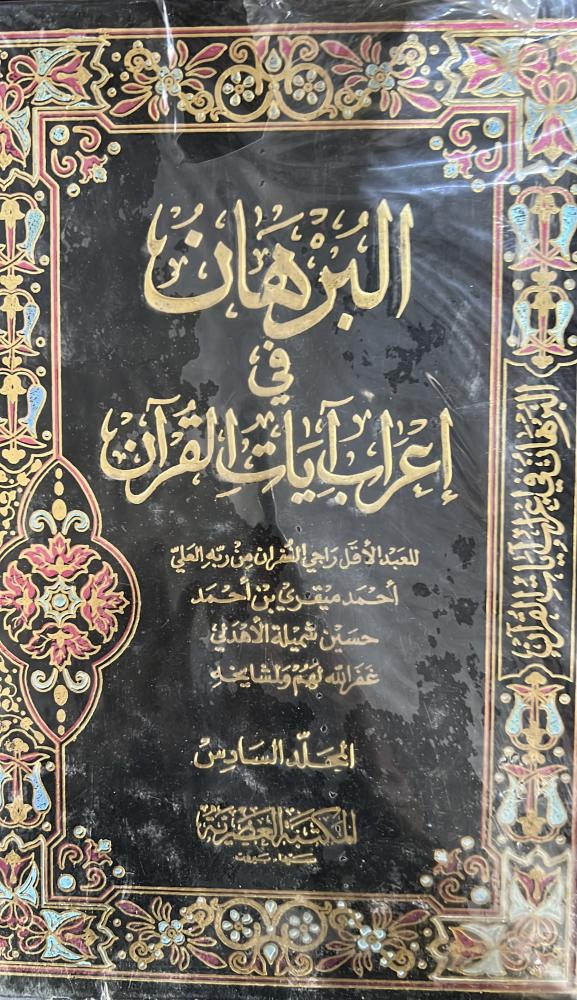 البُرْهَانُ
فِي
إِعْرَابِ آيَاتِ القُرْآنِ
للعبد الأقل راجي الغفران من ربه العليّ
أحمد ميقري بن أحمد
حسين شميلة الأهدلي
غفر الله لهم ولمشايخه
المجلّد السادس
المكتبة العصرية
صيدا - بيروت
البرهان في إعراب آيات القرآن